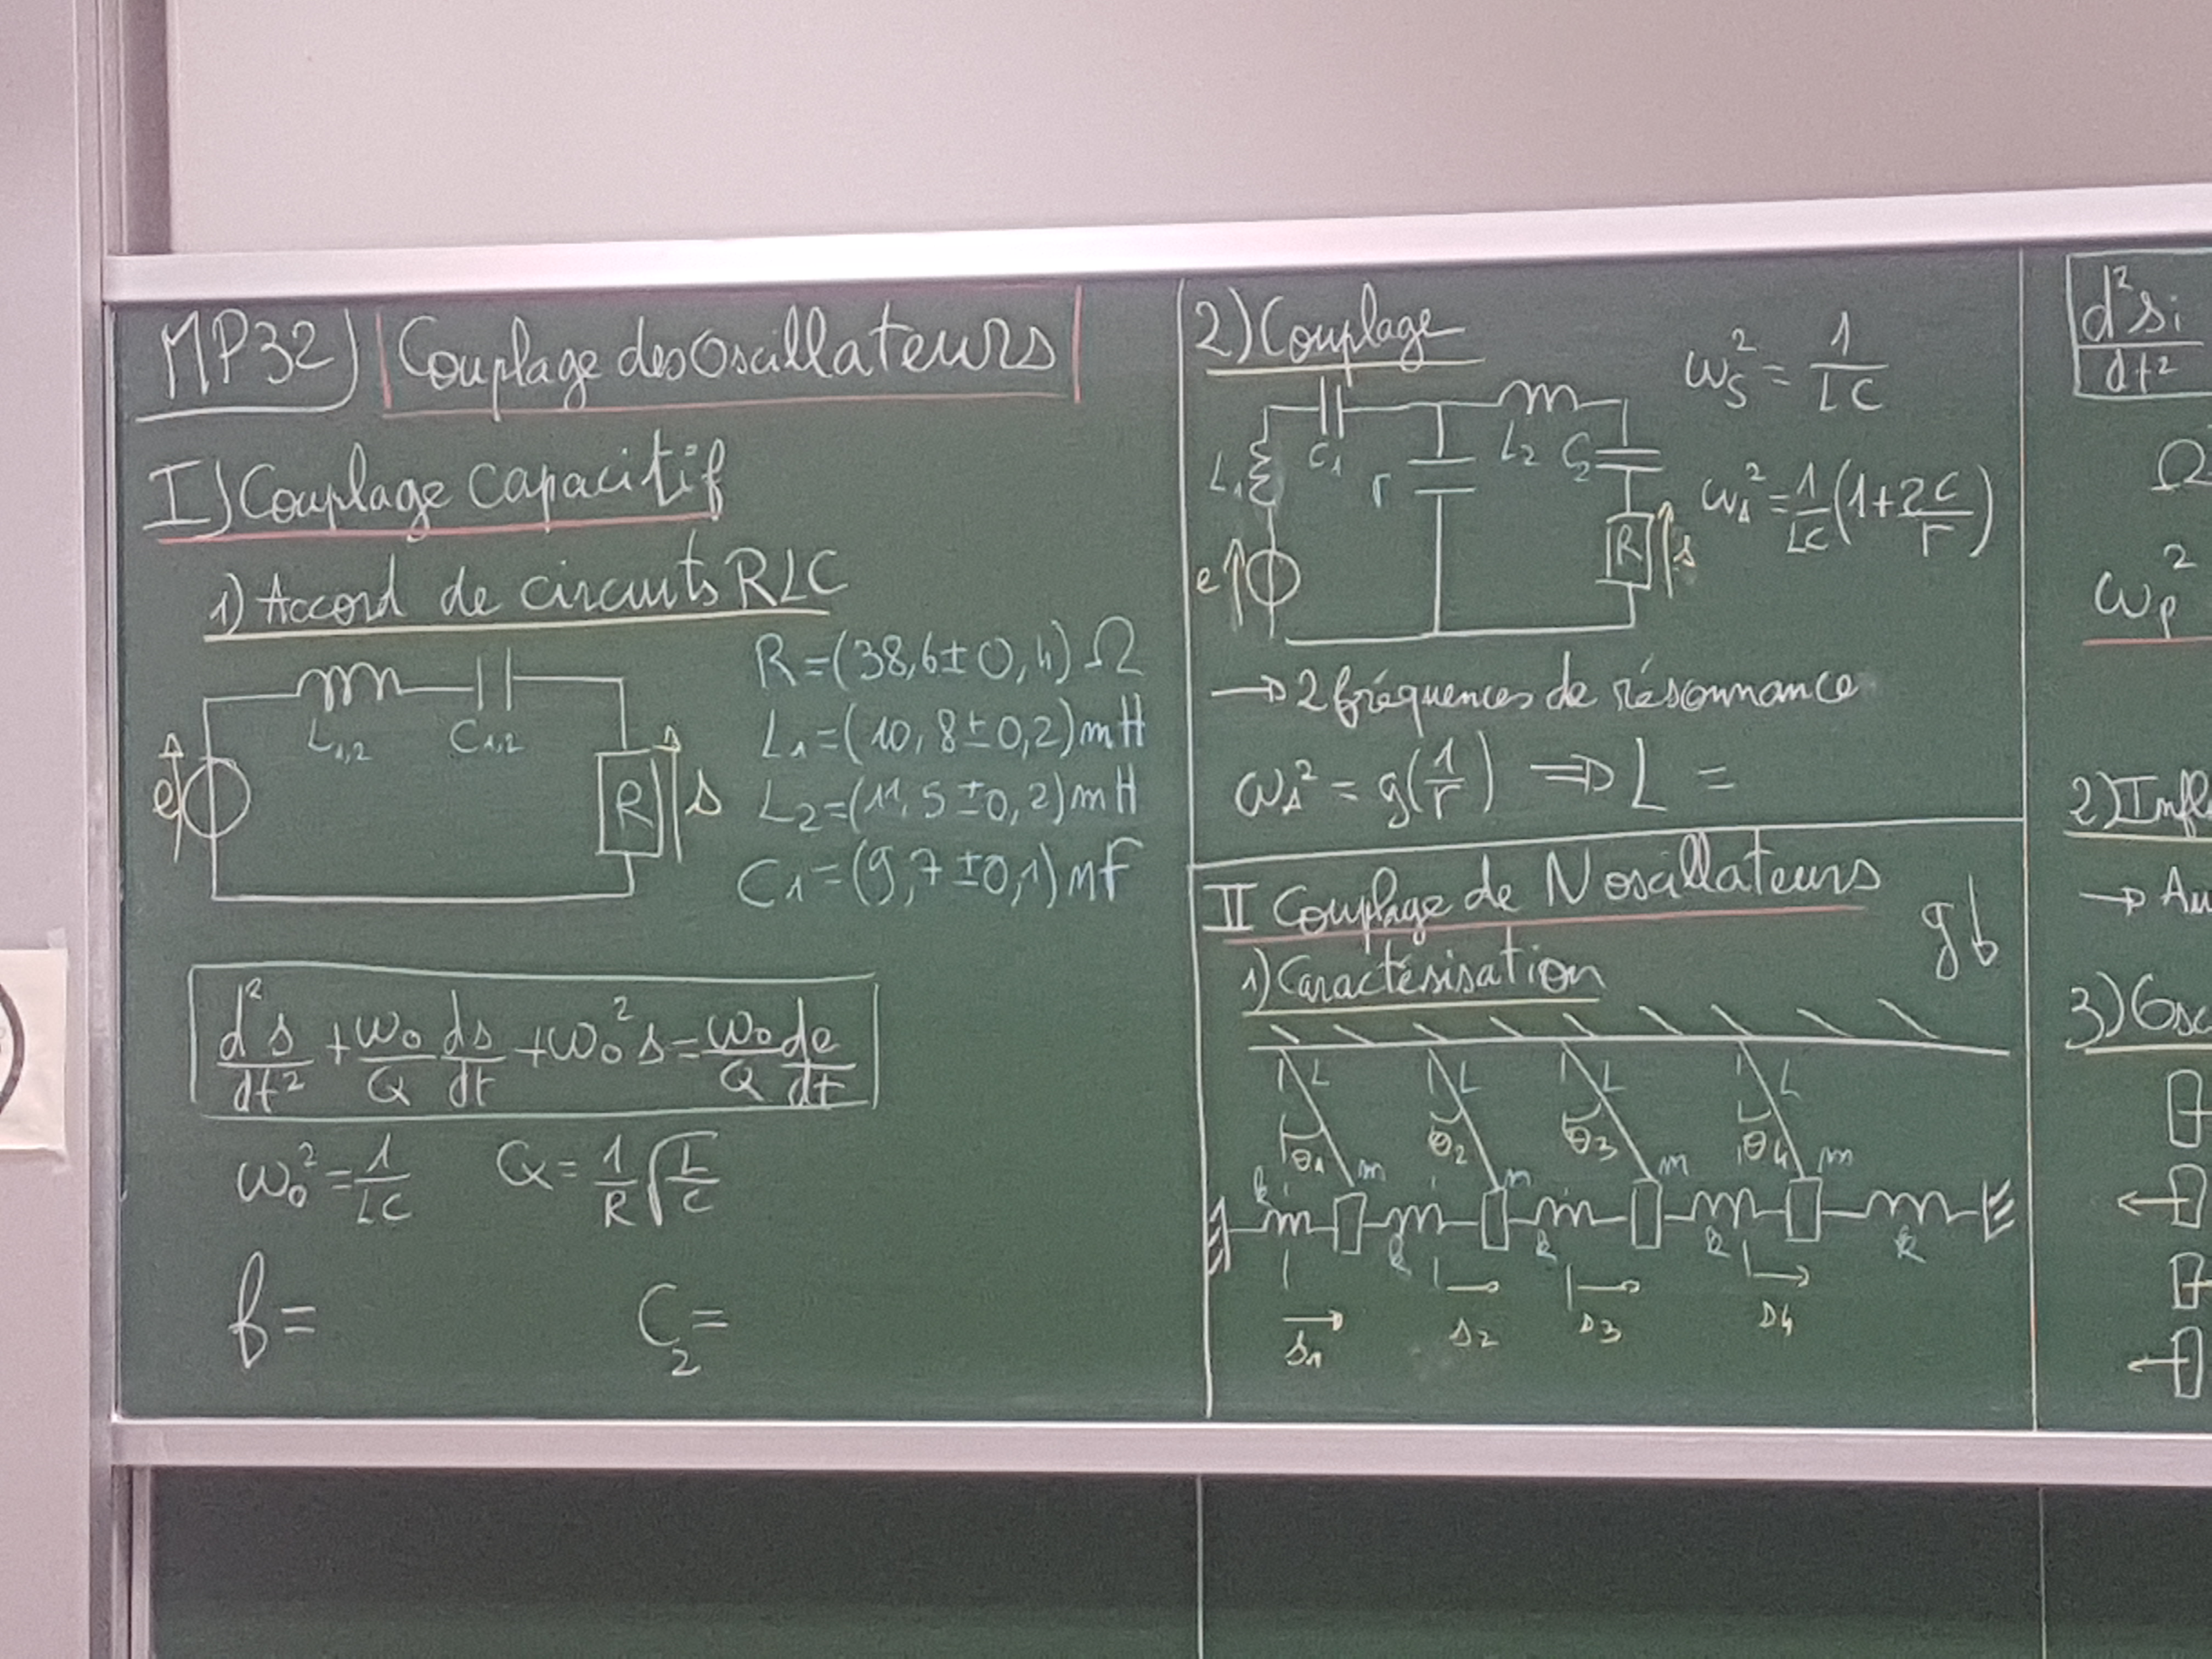 MP32) Couplage des Oscillateurs
I) Couplage capacitif
1) Accord de circuits RLC
L1,2 C1,2
e R s
R = (38,6 ± 0,4) Ω
L1 = (10,8 ± 0,2) mH
L2 = (11,5 ± 0,2) mH
C1 = (9,7 ± 0,1) nF
d²s/dt² + ω0/Q ds/dt + ω0² s = ω0/Q de/dt
ω0² = 1/LC Q = 1/R √(L/C)
f = C2 =
2) Couplage
L1 C1 Γ L2 C2
e R s
ωS² = 1/LC
ωA² = 1/LC (1 + 2C/Γ)
→ 2 fréquences de résonnance
ωA² = g(1/Γ) ⇒ L =
II Couplage de N oscillateurs
1) Caractérisation
g
L L L L
θ1 θ2 θ3 θ4
m m m m
k k k k k
s1 s2 s3 s4
d²si
dt²
Ω
ωp²
2) Infl
→ Au
3)